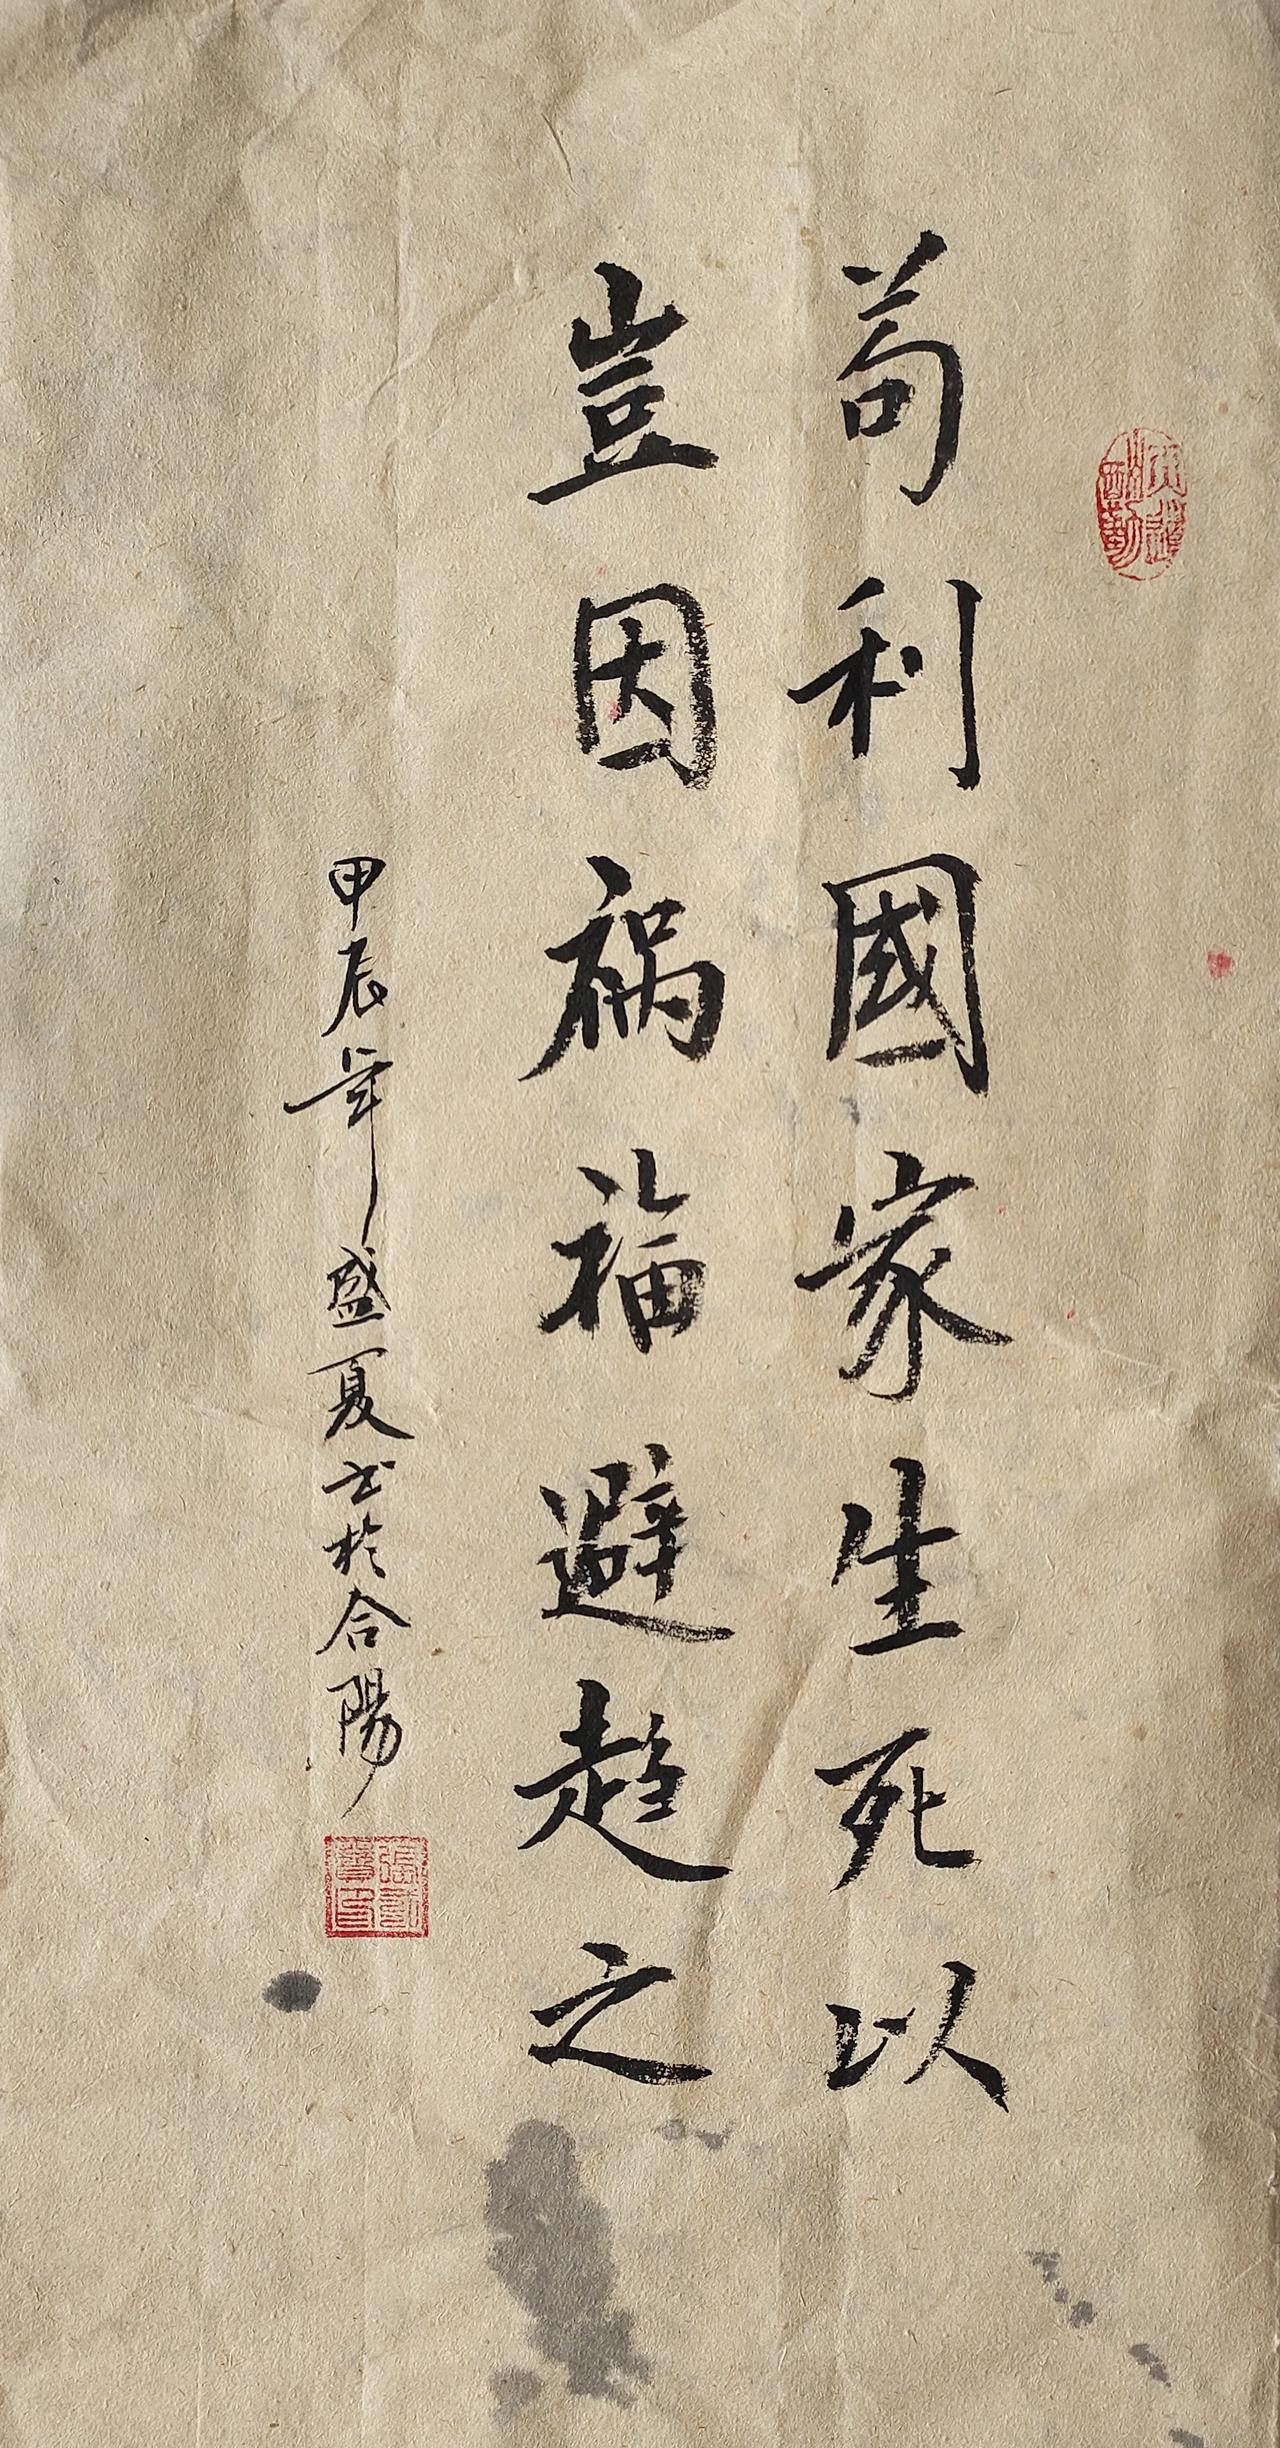 苟利國家生死以
豈因禍福避趨之
甲辰年盛夏书於合陽
天道酬勤